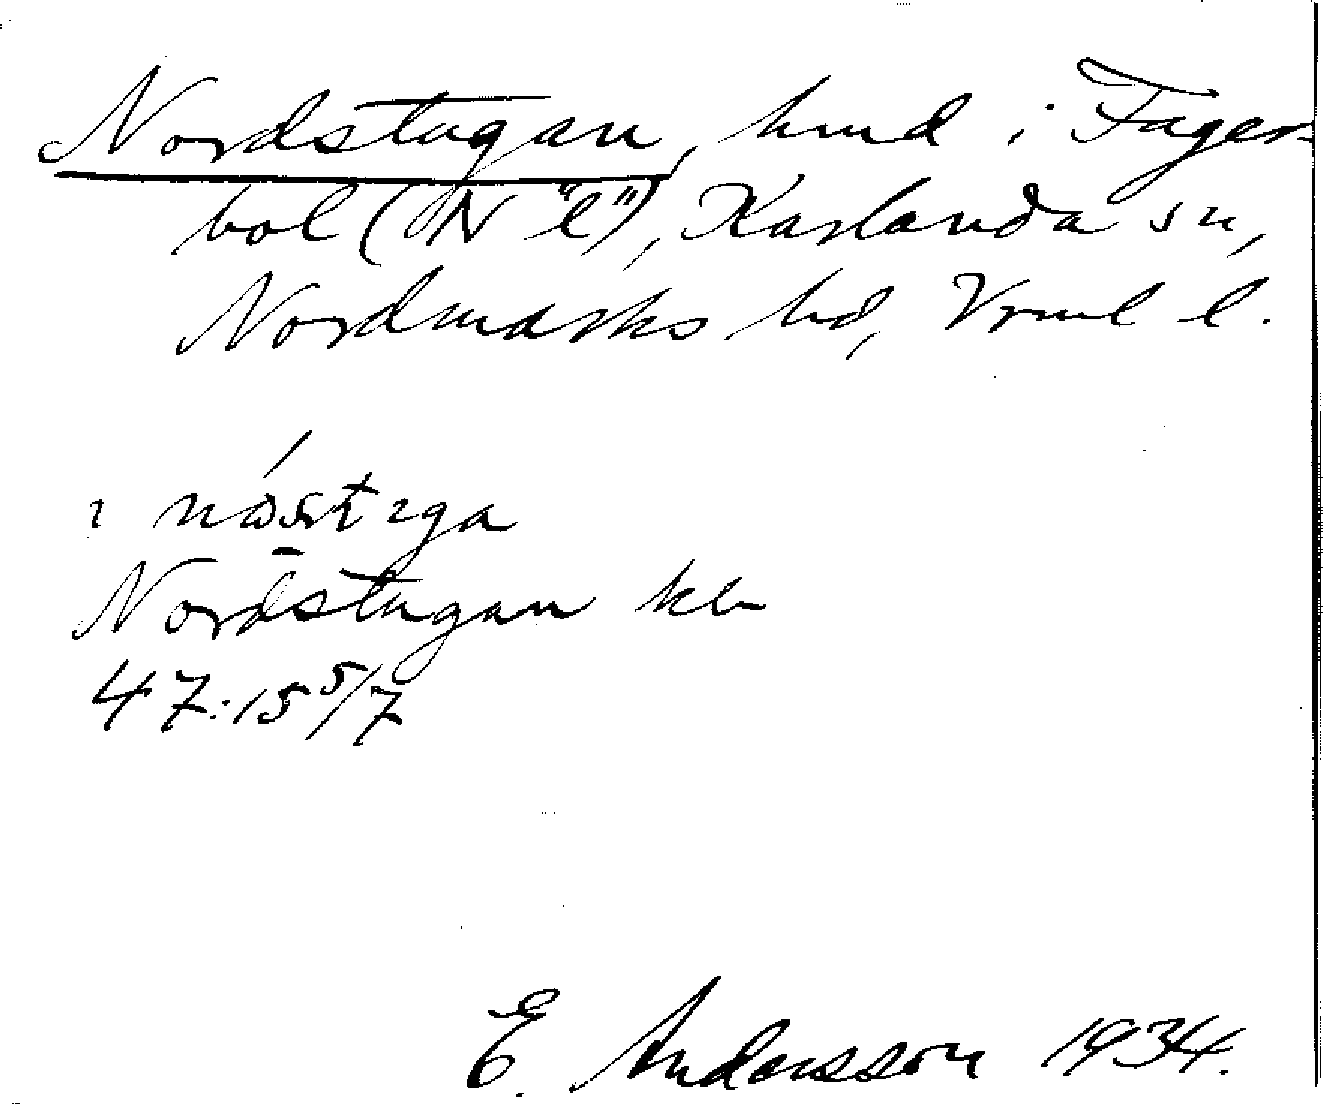 Nordstugan, hmd i Fager-
bol (N "l"), Karlanda sn,
Nordmarks hd, Vrml l.
Nordstugan kb
47:15 5/7
E. Andersson 1934.